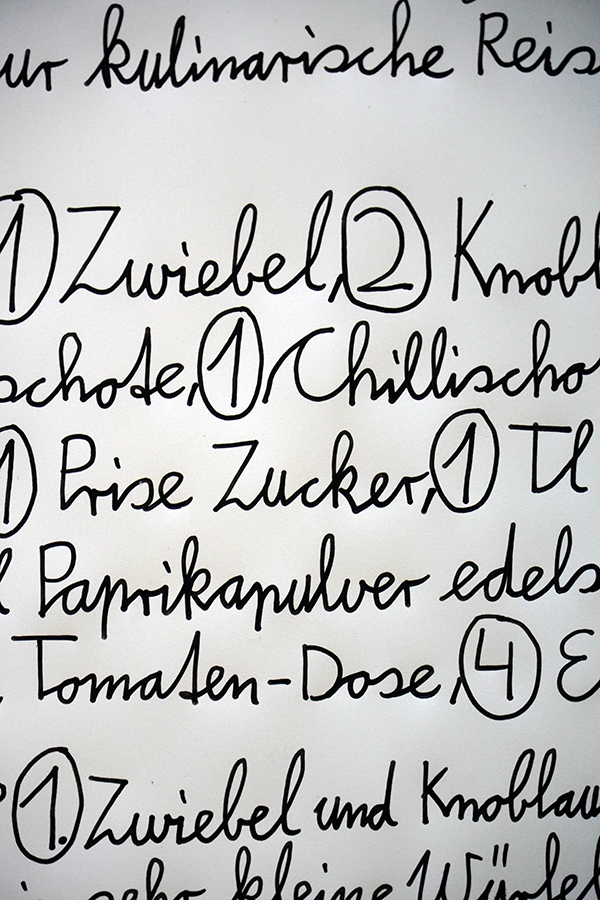 ur kulinarische Reis
1 Zwiebel, 2 Knobl
schote, 1 Chillischo
1 Prise Zucker, 1 Tl
l Paprikapulver edels
Tomaten-Dose, 4 E
1. Zwiebel und Knoblau
sehr kleine Würfel